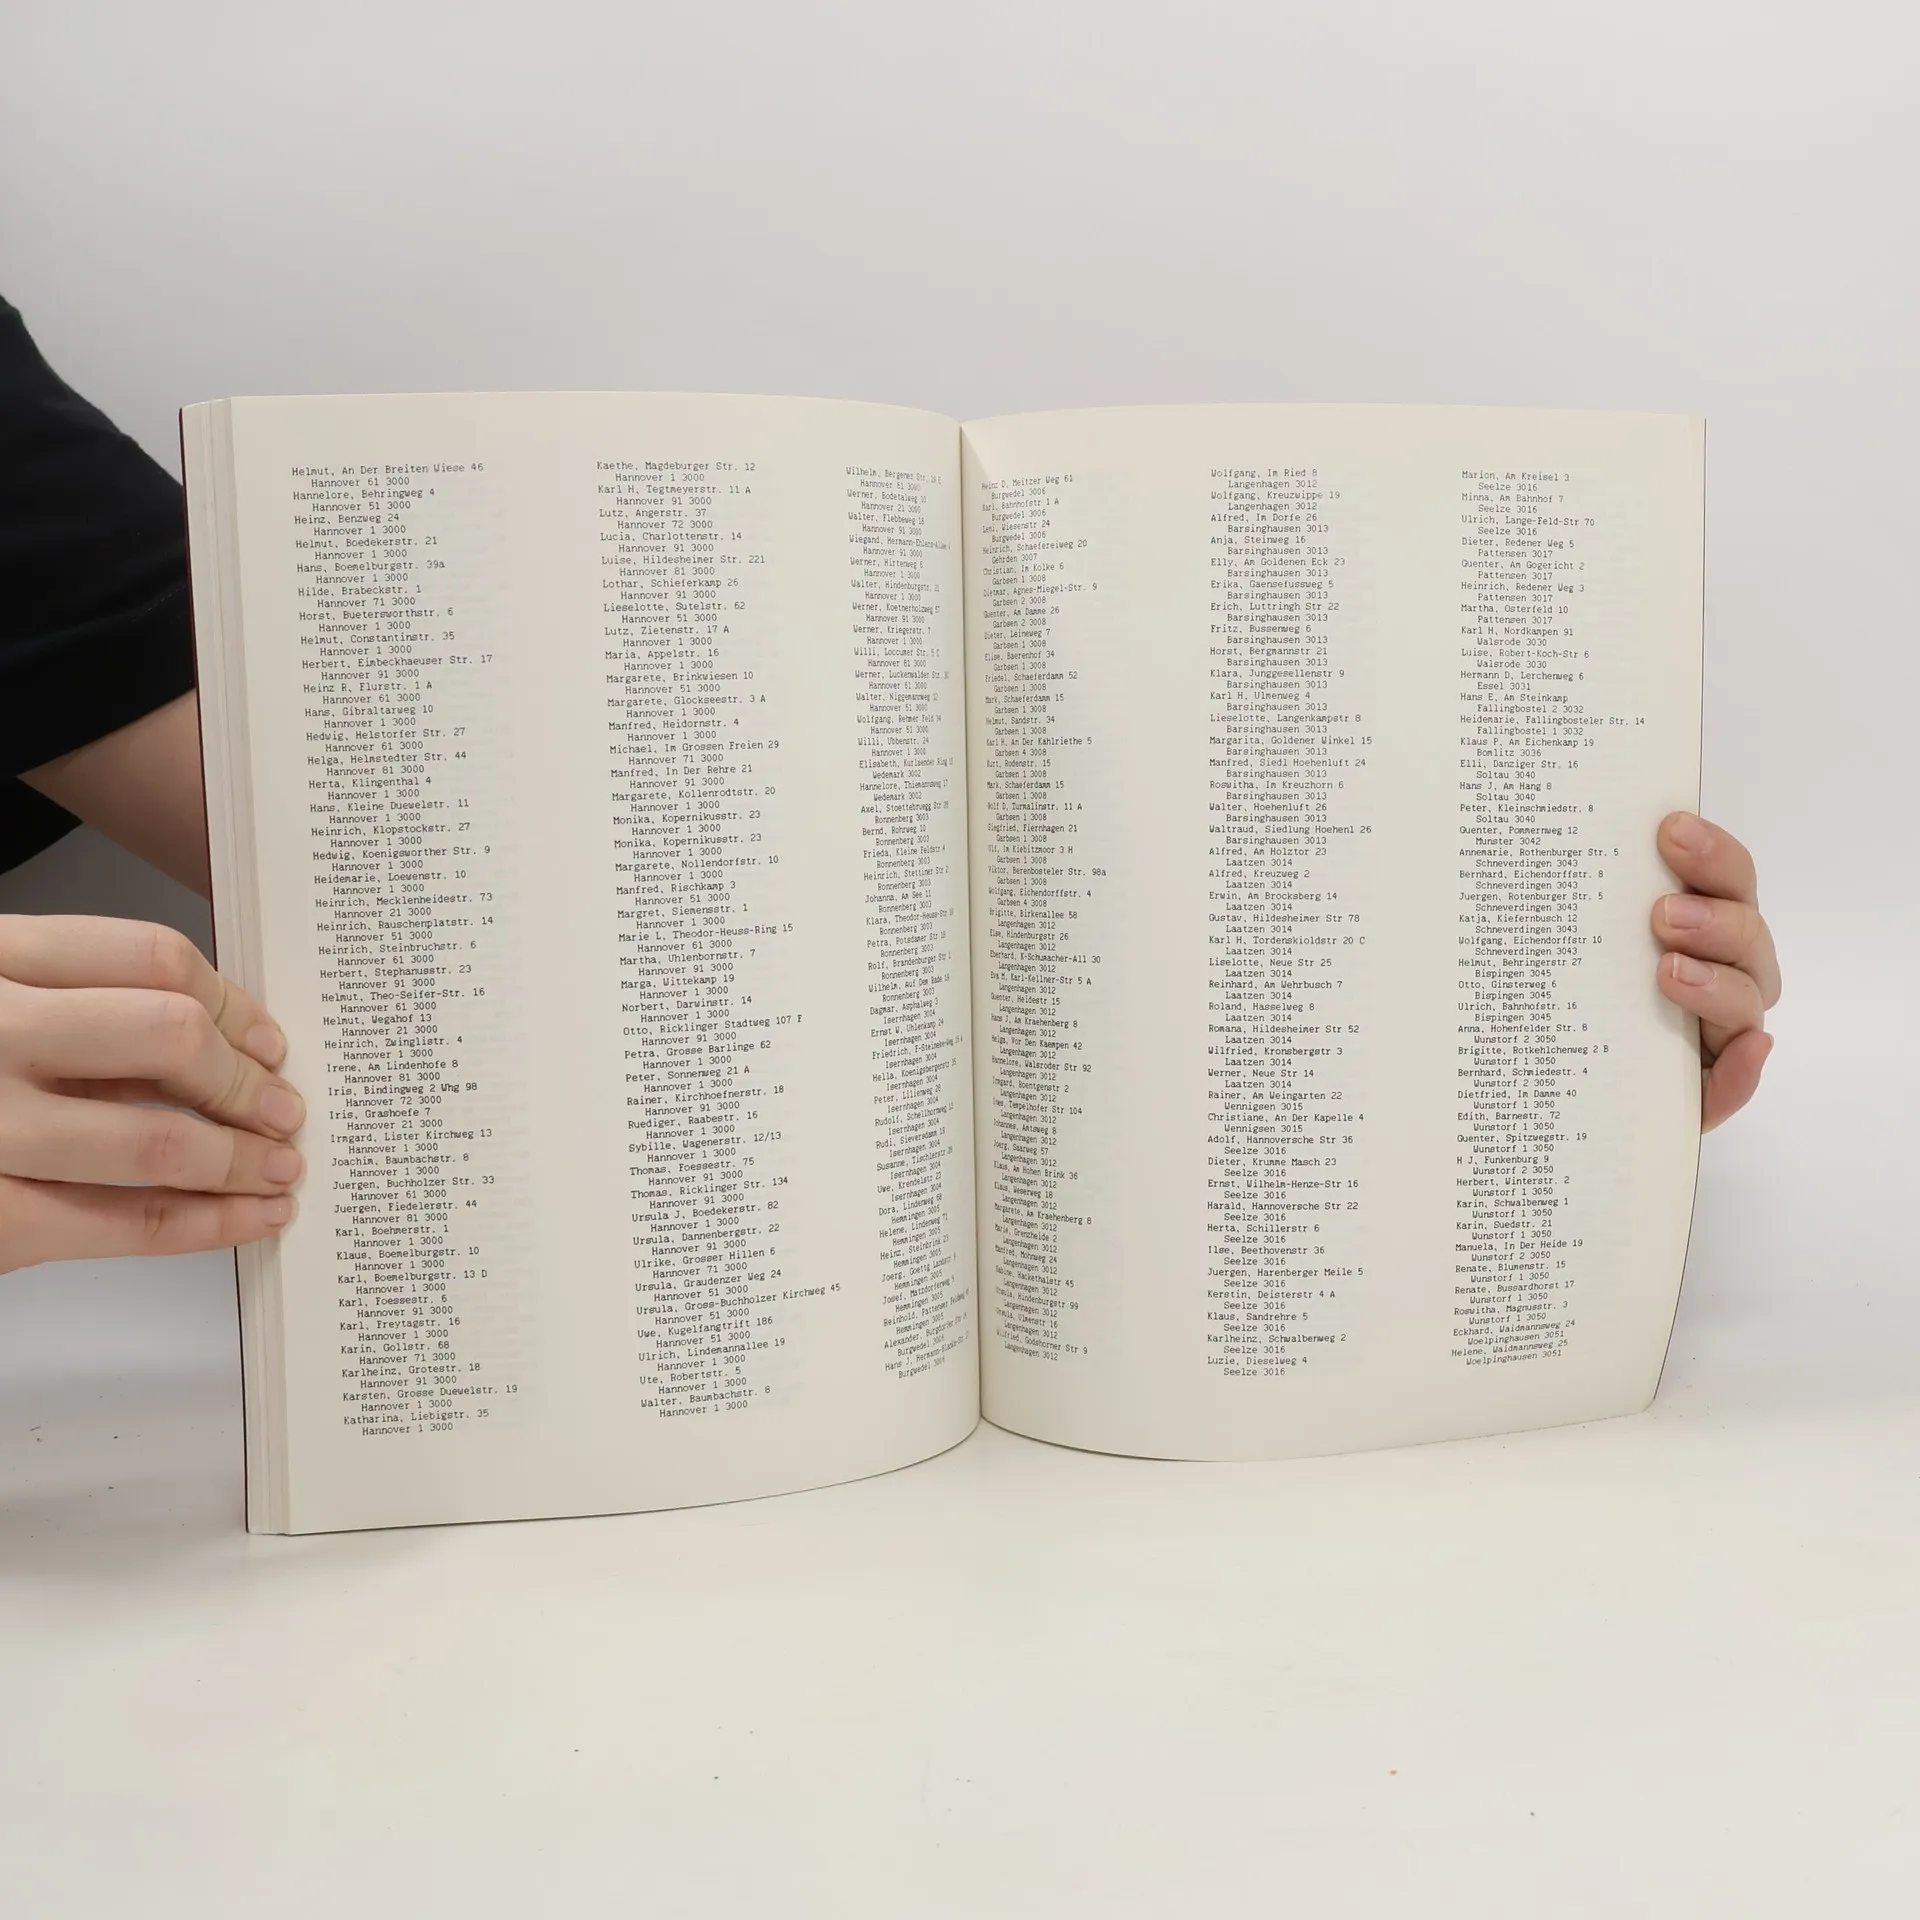 Helmut, An Der Breiten Wiese 46
Hannover 61 3000
Hannelore, Behringweg 4
Hannover 51 3000
Heinz, Benzweg 24
Hannover 1 3000
Helmut, Boedekerstr. 21
Hannover 1 3000
Hans, Boemelburgstr. 39a
Hannover 1 3000
Hilde, Brabeckstr. 1
Hannover 71 3000
Horst, Buetersworthstr. 6
Hannover 1 3000
Helmut, Constantinstr. 35
Hannover 1 3000
Herbert, Eimbeckhaeuser Str. 17
Hannover 91 3000
Heinz R, Flurstr. 1 A
Hannover 61 3000
Hans, Gibraltarweg 10
Hannover 1 3000
Hedwig, Helstorfer Str. 27
Hannover 61 3000
Helga, Helmstedter Str. 44
Hannover 81 3000
Herta, Klingenthal 4
Hannover 1 3000
Hans, Kleine Duewelstr. 11
Hannover 1 3000
Heinrich, Klopstockstr. 27
Hannover 1 3000
Hedwig, Koenigsworther Str. 9
Hannover 1 3000
Heidemarie, Loewenstr. 10
Hannover 1 3000
Heinrich, Mecklenheidestr. 73
Hannover 21 3000
Heinrich, Rauschenplatstr. 14
Hannover 51 3000
Heinrich, Steinbruchstr. 6
Hannover 61 3000
Herbert, Stephanusstr. 23
Hannover 91 3000
Helmut, Theo-Seifer-Str. 16
Hannover 61 3000
Helmut, Wegahof 13
Hannover 21 3000
Heinrich, Zwinglistr. 4
Hannover 1 3000
Irene, Am Lindenhofe 8
Hannover 81 3000
Iris, Bindingweg 2 Whg 98
Hannover 72 3000
Iris, Grashoefe 7
Hannover 21 3000
Irmgard, Lister Kirchweg 13
Hannover 1 3000
Joachim, Baumbachstr. 8
Hannover 1 3000
Juergen, Buchholzer Str. 33
Hannover 61 3000
Juergen, Fiedelerstr. 44
Hannover 81 3000
Karl, Boehmerstr. 1
Hannover 1 3000
Klaus, Boemelburgstr. 10
Hannover 1 3000
Karl, Boemelburgstr. 13 D
Hannover 1 3000
Karl, Foessestr. 6
Hannover 91 3000
Karl, Freytagstr. 16
Hannover 1 3000
Karin, Gollstr. 68
Hannover 71 3000
Karlheinz, Grotestr. 18
Hannover 91 3000
Karsten, Grosse Duewelstr. 19
Hannover 1 3000
Katharina, Liebigstr. 35
Hannover 1 3000
Kaethe, Magdeburger Str. 12
Hannover 1 3000
Karl H, Tegtmeyerstr. 11 A
Hannover 91 3000
Lutz, Angerstr. 37
Hannover 72 3000
Lucia, Charlottenstr. 14
Hannover 91 3000
Luise, Hildesheimer Str. 221
Hannover 81 3000
Lothar, Schieferkamp 26
Hannover 91 3000
Lieselotte, Sutelstr. 62
Hannover 51 3000
Lutz, Zietenstr. 17 A
Hannover 1 3000
Maria, Appelstr. 16
Hannover 1 3000
Margarete, Brinkwiesen 10
Hannover 51 3000
Margarete, Glockseestr. 3 A
Hannover 1 3000
Manfred, Heidornstr. 4
Hannover 1 3000
Michael, Im Grossen Freien 29
Hannover 71 3000
Manfred, In Der Rehre 21
Hannover 91 3000
Margarete, Kollenrodtstr. 20
Hannover 1 3000
Monika, Kopernikusstr. 23
Hannover 1 3000
Monika, Kopernikusstr. 23
Hannover 1 3000
Margarete, Nollendorfstr. 10
Hannover 1 3000
Manfred, Rischkamp 3
Hannover 51 3000
Margret, Siemensstr. 1
Hannover 1 3000
Marie L, Theodor-Heuss-Ring 15
Hannover 61 3000
Martha, Uhlenbornstr. 7
Hannover 91 3000
Marga, Wittekamp 19
Hannover 1 3000
Norbert, Darwinstr. 14
Hannover 1 3000
Otto, Ricklinger Stadtweg 107 F
Hannover 91 3000
Petra, Grosse Barlinge 62
Hannover 1 3000
Peter, Sonnenweg 21 A
Hannover 1 3000
Rainer, Kirchhoefnerstr. 18
Hannover 91 3000
Ruediger, Raabestr. 16
Hannover 1 3000
Sybille, Wagenerstr. 12/13
Hannover 1 3000
Thomas, Foessestr. 75
Hannover 91 3000
Thomas, Ricklinger Str. 134
Hannover 91 3000
Ursula J, Boedekerstr. 82
Hannover 1 3000
Ursula, Dannenbergstr. 22
Hannover 91 3000
Ulrike, Grosser Hillen 6
Hannover 71 3000
Ursula, Graudenzer Weg 24
Hannover 51 3000
Ursula, Gross-Buchholzer Kirchweg 45
Hannover 51 3000
Uwe, Kugelfangtrift 186
Hannover 51 3000
Ulrich, Lindemannallee 19
Hannover 1 3000
Ute, Robertstr. 5
Hannover 1 3000
Walter, Baumbachstr. 8
Hannover 1 3000
Wilhelm, Bergener Str.
Hannover 51 3000
Werner, Bodetalweg 10
Hannover 21 3000
Walter, Flebbeweg 16
Hannover 91 3000
Wiegand, Hermann-Ehlers-Allee
Hannover 91 3000
Werner, Hirtenweg 6
Hannover 1 3000
Walter, Hindenburgstr.
Hannover 1 3000
Werner, Koetnerholzweg
Hannover 91 3000
Werner, Kriegerstr. 7
Hannover 1 3000
Willi, Loccumer Str. 5 C
Hannover 81 3000
Werner, Luckenwalder Str.
Hannover 61 3000
Walter, Niggemannweg 12
Hannover 51 3000
Wolfgang, Rehmer Feld 34
Hannover 51 3000
Willi, Ubbenstr. 24
Hannover 1 3000
Elisabeth, Kurlaender Ring
Wedemark 3002
Hannelore, Thiemannsweg 17
Wedemark 3002
Axel, Stoettebruegg Str
Ronnenberg 3003
Bernd, Rohrweg 10
Ronnenberg 3003
Frieda, Kleine Feldstr 4
Ronnenberg 3003
Heinrich, Stettiner Str 2
Ronnenberg 3003
Johanna, Am See 11
Ronnenberg 3003
Klara, Theodor-Heuss-Str
Ronnenberg 3003
Petra, Potsdamer Str
Ronnenberg 3003
Rolf, Brandenburger Str
Ronnenberg 3003
Wilhelm, Auf Dem Rade
Ronnenberg 3003
Dagmar, Asphalweg 3
Isernhagen 3004
Ernst W, Uhlenkamp 24
Isernhagen 3004
Friedrich, F-Steineke-Weg
Isernhagen 3004
Hella, Koenigsbergerstr
Isernhagen 3004
Peter, Lilienweg
Isernhagen 3004
Rudolf, Schellhornweg
Isernhagen 3004
Rudi, Sieversdamm
Isernhagen 3004
Susanne, Tischlerstr
Isernhagen 3004
Uwe, Krendelstr 23
Isernhagen 3004
Dora, Lindenweg
Hemmingen 3005
Helene, Lindenweg 71
Hemmingen 3005
Heinz, Steinbrink 23
Hemmingen 3005
Joerg, Goettg Landstr
Hemmingen 3005
Josef, Matzdorferweg
Hemmingen 3005
Reinhold, Pattenser Feldweg
Hemmingen 3005
Alexander, Burgdorfer Str
Burgwedel 3006
Hans J, Hermann-Blancke-Str
Burgwedel 3006
Heinz D, Meitzer Weg 61
Burgwedel 3006
Karl, Bahnhofstr 1 A
Burgwedel 3006
Leni, Wiesenstr 24
Burgwedel 3006
Heinrich, Schaefereiweg 20
Gehrden 3007
Christian, Im Kolke 6
Garbsen 1 3008
Dietmar, Agnes-Miegel-Str. 9
Garbsen 2 3008
Guenter, Am Damme 26
Garbsen 2 3008
Dieter, Leineweg 7
Garbsen 1 3008
Elise, Baerenhof 34
Garbsen 1 3008
Friedel, Schaeferdamm 52
Garbsen 1 3008
Mark, Schaeferdamm 15
Garbsen 1 3008
Helmut, Sandstr. 34
Garbsen 1 3008
Karl H, An Der Kahlriethe 5
Garbsen 4 3008
Kurt, Rodenstr. 15
Garbsen 1 3008
Mark, Schaeferdamm 15
Garbsen 1 3008
Rolf D, Turmalinstr. 11 A
Garbsen 1 3008
Siegfried, Fiernhagen 21
Garbsen 1 3008
Ulf, Im Kiebitzmoor 3 H
Garbsen 1 3008
Viktor, Berenbosteler Str. 98a
Garbsen 1 3008
Wolfgang, Eichendorffstr. 4
Garbsen 4 3008
Brigitte, Birkenallee 58
Langenhagen 3012
Else, Hindenburgstr 26
Langenhagen 3012
Eberhard, K-Schumacher-All 30
Langenhagen 3012
Eva M, Karl-Kellner-Str 5 A
Langenhagen 3012
Guenter, Heidestr 15
Langenhagen 3012
Hans J, Am Kraehenberg 8
Langenhagen 3012
Helga, Vor Den Kaempen 42
Langenhagen 3012
Hannelore, Walsroder Str 92
Langenhagen 3012
Irmgard, Roentgenstr 2
Langenhagen 3012
Ines, Tempelhofer Str 104
Langenhagen 3012
Johannes, Amtsweg 8
Langenhagen 3012
Joerg, Saarweg 57
Langenhagen 3012
Klaus, Am Hohen Brink 36
Langenhagen 3012
Klaus, Weserweg 18
Langenhagen 3012
Margarete, Am Kraehenberg 8
Langenhagen 3012
Marie, Grenzheide 2
Langenhagen 3012
Manfred, Mohnweg 24
Langenhagen 3012
Sabine, Hackethalstr 45
Langenhagen 3012
Ursula, Hindenburgstr 99
Langenhagen 3012
Ursula, Ulmenstr 16
Langenhagen 3012
Wilfried, Godshorner Str 9
Langenhagen 3012
Wolfgang, Im Ried 8
Langenhagen 3012
Wolfgang, Kreuzwippe 19
Langenhagen 3012
Alfred, Im Dorfe 26
Barsinghausen 3013
Anja, Steinweg 16
Barsinghausen 3013
Elly, Am Goldenen Eck 23
Barsinghausen 3013
Erika, Gaensefussweg 5
Barsinghausen 3013
Erich, Luttringh Str 22
Barsinghausen 3013
Fritz, Bussenweg 6
Barsinghausen 3013
Horst, Bergmannstr 21
Barsinghausen 3013
Klara, Junggesellenstr 9
Barsinghausen 3013
Karl H, Ulmenweg 4
Barsinghausen 3013
Lieselotte, Langenkampstr 8
Barsinghausen 3013
Margarita, Goldener Winkel 15
Barsinghausen 3013
Manfred, Siedl Hoehenluft 24
Barsinghausen 3013
Roswitha, Im Kreuzhorn 6
Barsinghausen 3013
Walter, Hoehenluft 26
Barsinghausen 3013
Waltraud, Siedlung Hoehenl 26
Barsinghausen 3013
Alfred, Am Holztor 23
Laatzen 3014
Alfred, Kreuzweg 2
Laatzen 3014
Erwin, Am Brocksberg 14
Laatzen 3014
Gustav, Hildesheimer Str 78
Laatzen 3014
Karl H, Tordenskioldstr 20 C
Laatzen 3014
Liselotte, Neue Str 25
Laatzen 3014
Reinhard, Am Wehrbusch 7
Laatzen 3014
Roland, Hasselweg 8
Laatzen 3014
Romana, Hildesheimer Str 52
Laatzen 3014
Wilfried, Kronsbergstr 3
Laatzen 3014
Werner, Neue Str 14
Laatzen 3014
Rainer, Am Weingarten 22
Wennigsen 3015
Christiane, An Der Kapelle 4
Wennigsen 3015
Adolf, Hannoversche Str 36
Seelze 3016
Dieter, Krumme Masch 23
Seelze 3016
Ernst, Wilhelm-Henze-Str 16
Seelze 3016
Harald, Hannoversche Str 22
Seelze 3016
Herta, Schillerstr 6
Seelze 3016
Ilse, Beethovenstr 36
Seelze 3016
Juergen, Harenberger Meile 5
Seelze 3016
Kerstin, Deisterstr 4 A
Seelze 3016
Klaus, Sandrehre 5
Seelze 3016
Karlheinz, Schwalbenweg 2
Seelze 3016
Luzie, Dieselweg 4
Seelze 3016
Marion, Am Kreisel 3
Seelze 3016
Minna, Am Bahnhof 7
Seelze 3016
Ulrich, Lange-Feld-Str 70
Seelze 3016
Dieter, Redener Weg 5
Pattensen 3017
Guenter, Am Gogericht 2
Pattensen 3017
Heinrich, Redener Weg 3
Pattensen 3017
Martha, Osterfeld 10
Pattensen 3017
Karl H, Nordkampen 91
Walsrode 3030
Luise, Robert-Koch-Str 6
Walsrode 3030
Hermann D, Lerchenweg 6
Essel 3031
Hans E, Am Steinkamp
Fallingbostel 2 3032
Heidemarie, Fallingbosteler Str. 14
Fallingbostel 1 3032
Klaus P, Am Eichenkamp 19
Bomlitz 3036
Elli, Danziger Str. 16
Soltau 3040
Hans J, Am Hang 8
Soltau 3040
Peter, Kleinschmiedstr. 8
Soltau 3040
Guenter, Pommernweg 12
Munster 3042
Annemarie, Rothenburger Str. 5
Schneverdingen 3043
Bernhard, Eichendorffstr. 8
Schneverdingen 3043
Juergen, Rotenburger Str. 5
Schneverdingen 3043
Katja, Kiefernbusch 12
Schneverdingen 3043
Wolfgang, Eichendorffstr 10
Schneverdingen 3043
Helmut, Behringerstr 27
Bispingen 3045
Otto, Ginsterweg 6
Bispingen 3045
Ulrich, Bahnhofstr. 16
Bispingen 3045
Anna, Hohenfelder Str. 8
Wunstorf 2 3050
Brigitte, Rotkehlchenweg 2 B
Wunstorf 1 3050
Bernhard, Schmiedestr. 4
Wunstorf 2 3050
Dietfried, Im Damme 40
Wunstorf 1 3050
Edith, Barnestr. 72
Wunstorf 1 3050
Guenter, Spitzwegstr. 19
Wunstorf 1 3050
H J, Funkenburg 9
Wunstorf 2 3050
Herbert, Winterstr. 2
Wunstorf 1 3050
Karin, Schwalbenweg 1
Wunstorf 1 3050
Karin, Suedstr. 21
Wunstorf 1 3050
Manuela, In Der Heide 19
Wunstorf 2 3050
Renate, Blumenstr. 15
Wunstorf 1 3050
Renate, Bussardhorst 17
Wunstorf 1 3050
Roswitha, Magnusstr. 3
Wunstorf 1 3050
Eckhard, Waidmannsweg 24
Woelpinghausen 3051
Helene, Waidmannsweg 25
Woelpinghausen 3051